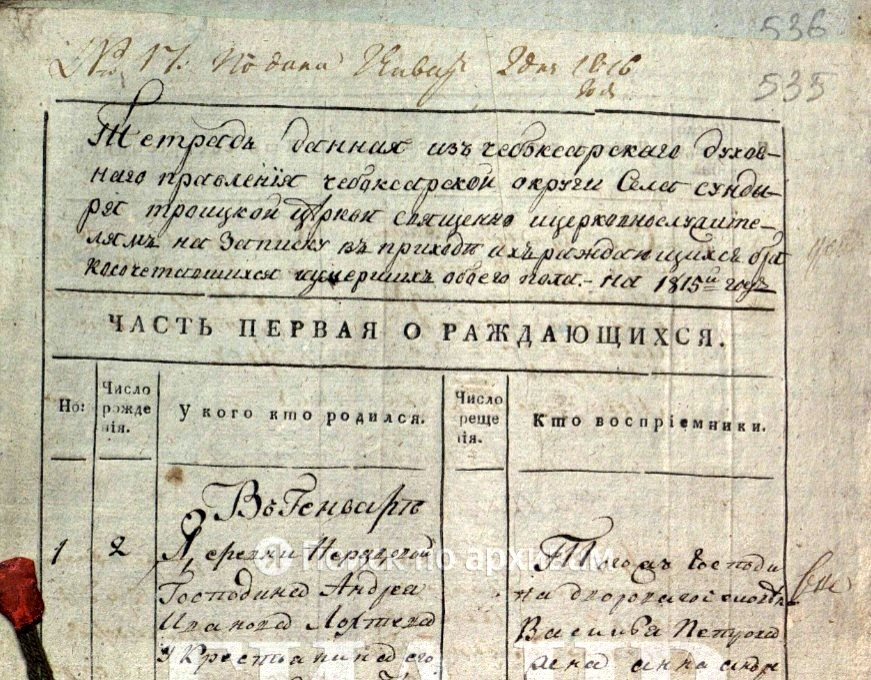 536
№ 17. Подана Января 2 дня 1816
года
535
Тетрадь данная изъ чебоксарскаго духов-
наго правленія чебоксарской округи Села сунды-
ря троицкой Церкви священно ицерковнослужите-
лямъ на Записку въ приходѣ ихъ раждающихся бра
косочетавшихся иумершихъ обоего пола. - на 1815й годъ
ЧАСТЬ ПЕРВАЯ О РАЖДАЮЩИХСЯ.
Но:
Число
рожде
нія.
У кого кто родился.
Число
креще
нія.
Кто воспріемники.
Въ Генварѣ
1
2
Деревни
Господина Андрея
Иванова
У Крестьянина его
Тогожъ Господи
на двороваго
Василья Петрова
жена анна андре
Поиск по архивам